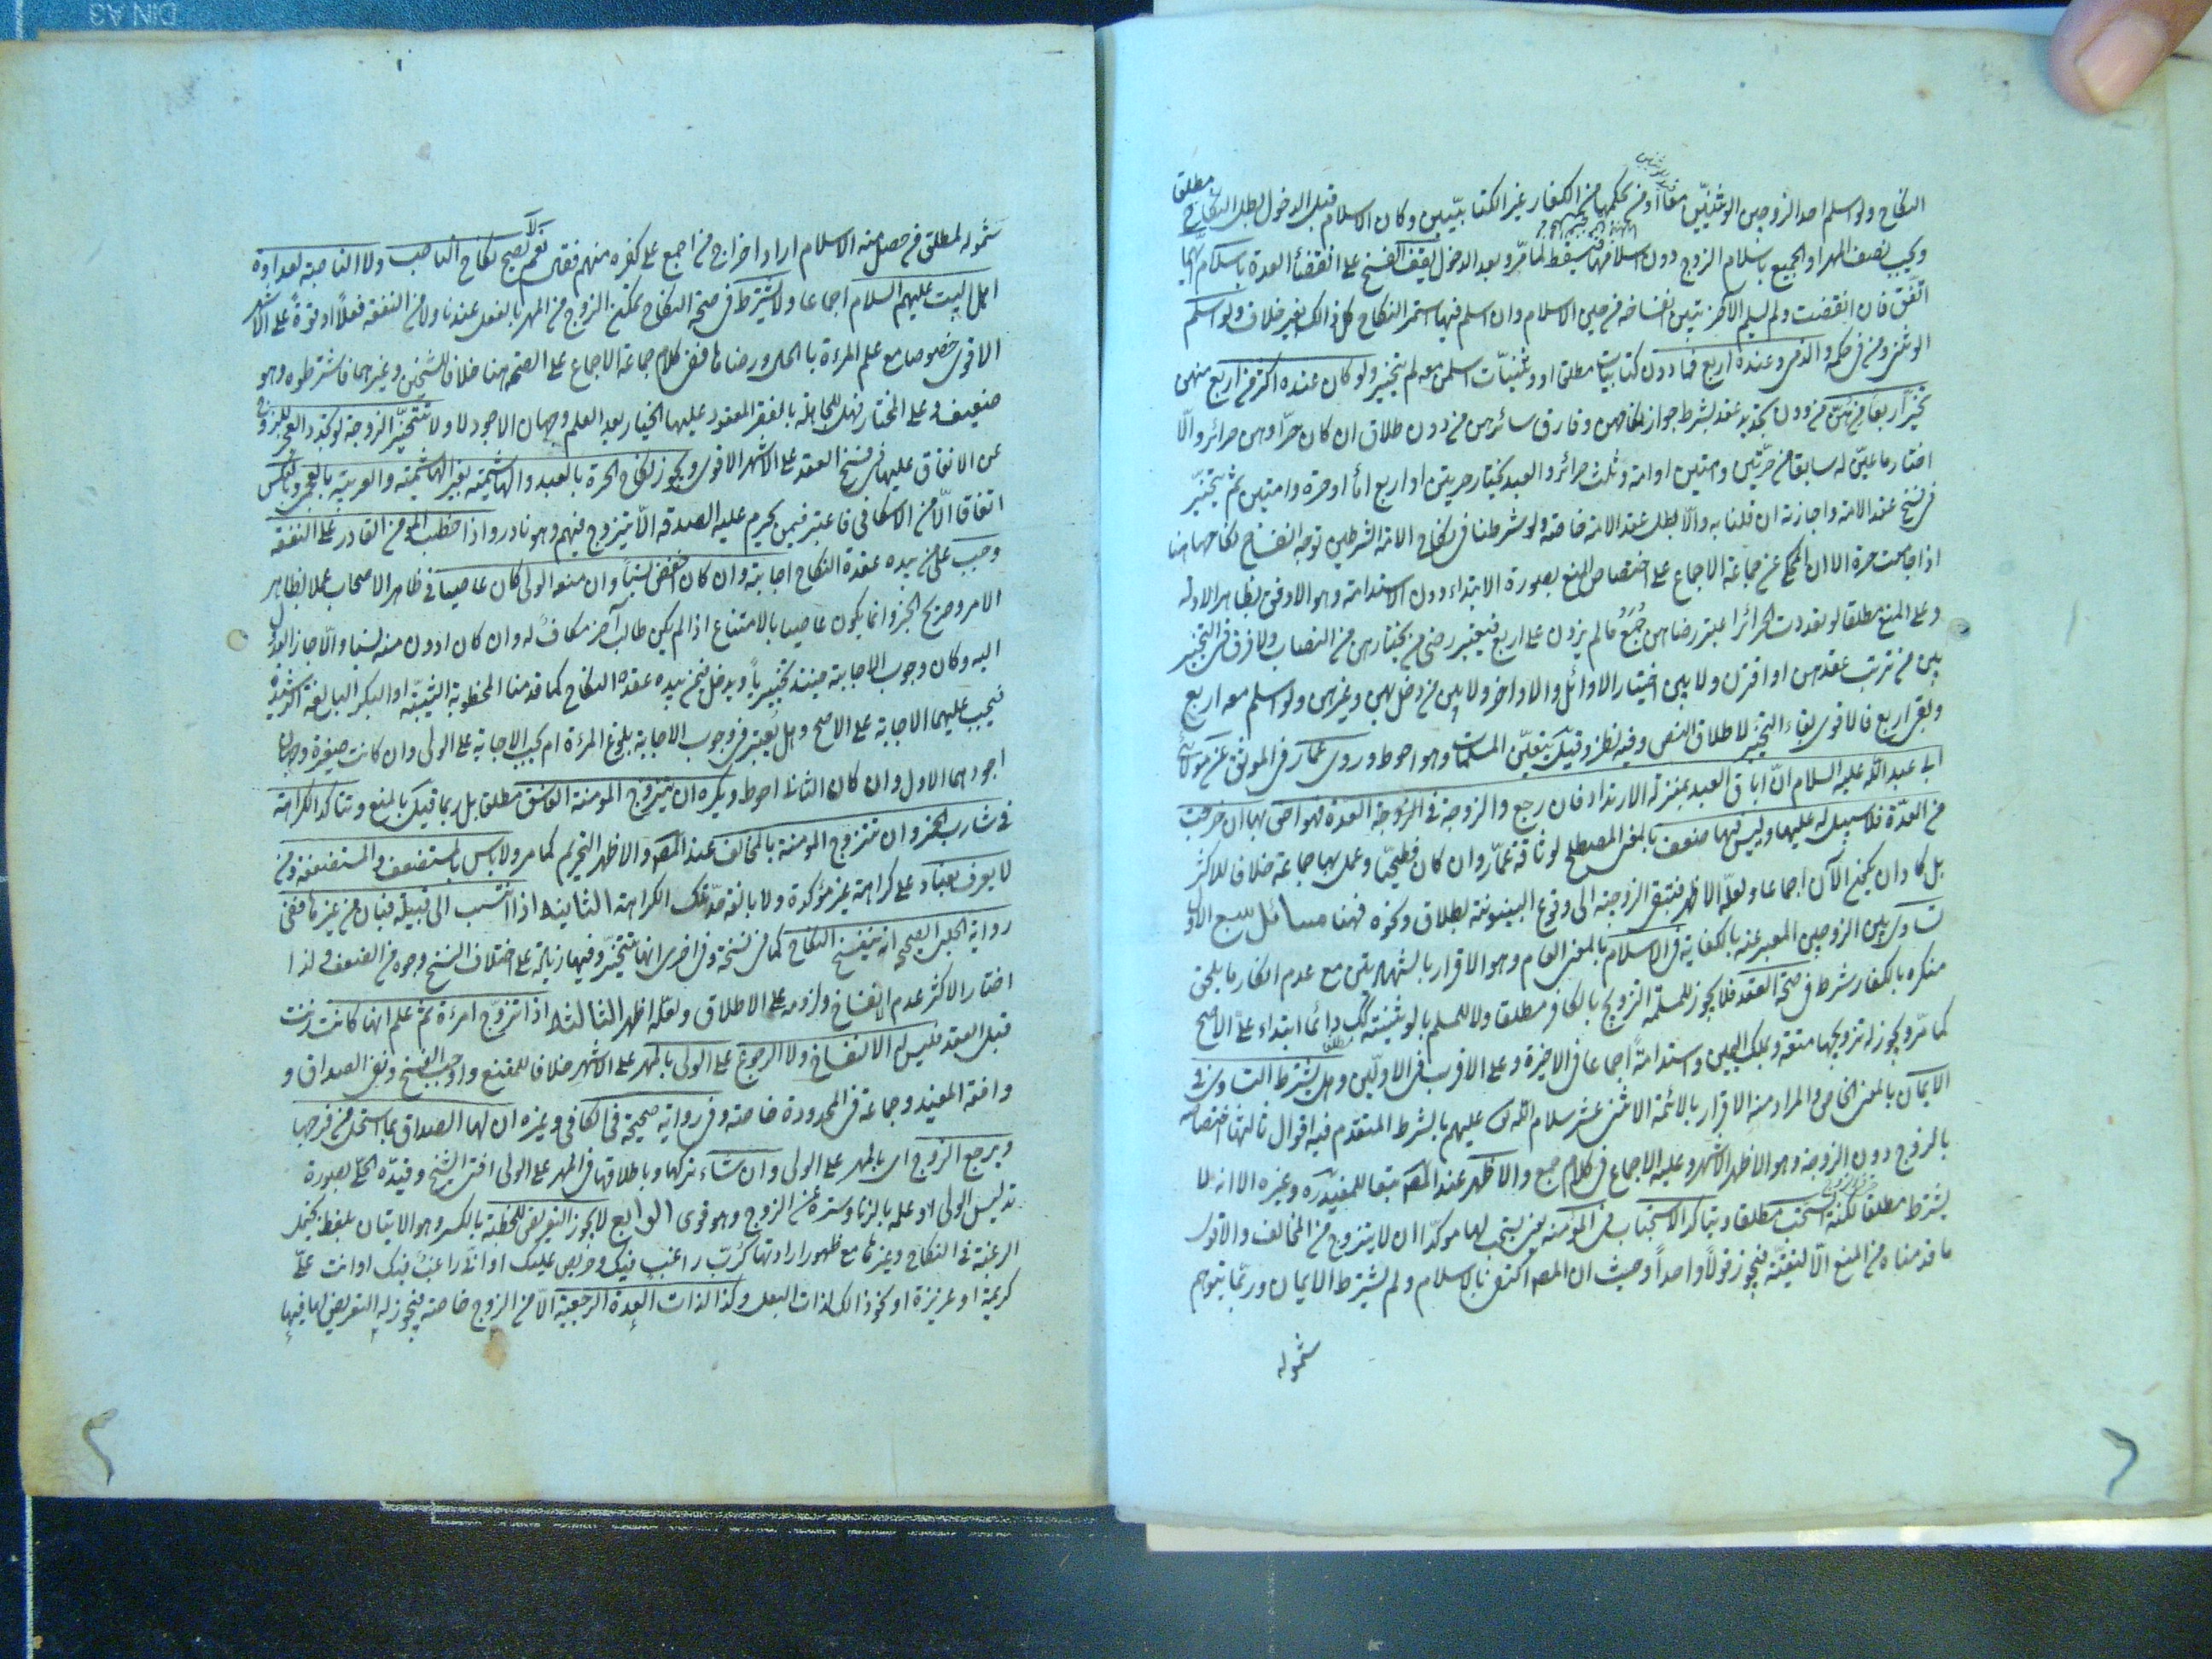 النكاح ولو اسلم احد الزوجين الوثنيين او من بحكمهما من الكفار غير الكتابيين وكان الاسلام قبل الدخول بطل النكاح مطلقا
ويجب نصف المهر او الجميع باسلام الزوج دون اسلامها فيسقط لما مرّ وبعد الدخول يقف الفسخ على انقضاء العدة باسلام ايهما
اتفق فان انقضت ولم يسلم الآخر تبين انفساخه من حين الاسلام وان اسلم فيها استمر النكاح كل ذالك بغير خلاف ولو اسلم
الوثنى ومن فى حكمه والذمى وعنده اربع فما دون كتابيات مطلقا او وثنيّات اسلمن معه لم يتخير ولو كان عنده اكثر من اربع منهن
تخيّر اربعا منهنّ من دون تجديد عقد بشرط جواز نكاحهن وفارق سائرهن من دون طلاق ان كان حرّا وهن حرائر والّا
اختار ما عيّن له سابقا من حرّتين وامتين او امة وثلث حرائر والعبد يختار حرتين او اربع اماء او حرة وامتين ثم يتخيّر
فى فسخ عقد الامة واجازته ان قلنا به والّا بطل عقد الامة خاصة ولو شرطنا فى نكاح الامة الشرطين توجه انفساخ نكاحها هنا
اذا جامعت حرة الا ان المحكى عن جماعة الاجماع على اختصاص المنع بصورة الابتداء دون الاستدامة وهو الاوفق بظاهر الادلة
وعلى المنع مطلقا لو تعددت الحرائر اعتبر رضاهن جُمَع ما لم يزدن على اربع فيعتبر رضى من يختارهن من النصاب ولا فرق فى التخيير
بين من ترتب عقدهن او اقترن ولا بين اختيار الاوائل والاواخر ولا بين من دخل بهن وغيرهن ولو اسلم معه اربع
وبقى اربع فالاقوى بقاء التخيير لاطلاق النص وفيه نظر وقيل يتعيّن المسلمات وهو احوط وروى عمار فى الموثق عن مولانا
ابى عبد الله عليه السلام انّ اباق العبد بمنزلة الارتداد فان رجع والزوجة فى الزوجة العدة فهو احق بها وان خرجت
من العدّة فلا سبيل له عليها وليس فيها ضعف بالمعنى المصطلح لوثاقة عمّار وان كان فطحيّا وعمل بها جماعة خلافا للاكثر
بل كاد ان يكون الآن اجماعا ولعلّه الاظهر فتبقى الزوجية الى وقوع البينونة بطلاق ونحوه فهنا مسائل سبع الاولى
تساوى بين الزوجين المعبر عنه بالكفاية فى الاسلام بالمعنى العام وهو الاقرار بالشهادتين مع عدم انكار ما يلحق
منكره بالكفار شرط فى صحة العقد فلا يجوز للمسلمة التزويج بالكافر مطلقا ولا للمسلم بالوثنية كك دائما ابتداء على الاصح
كما مرّ ويجوز له تزويجها متعة وبملك اليمين واستدامةً اجماعا فى الاخيرة وعلى الاقرب فى الاولين وهل يشترط التساوى فى
الايمان بالمعنى الخاص والمراد منه الاقرار بالائمة الاثنى عشر سلام الله عليهم بالشرط المتقدم فيه اقوال ثالثها اختصاصه
بالزوج دون الزوجة وهو الاظهر الاشهر وعليه الاجماع فى كلام جمع والاظهر عند المصه تبعا للمفيد ره وغيره الا انه لا
يشترط مطلقا لكنه يستحب مطلقا ويتاكد الاستحباب فى المؤمنة يعنى يستحب لها موكدا ان لا يتزوج من المخالف والاقوى
ما قدمناه من المنع الّا لتقيّة فيجوز قولاً واحداً وحيث ان المصه اكتفى بالاسلام ولم يشترط الايمان وربّما يتوهم
شموله
شموله لمطلق من حصل منه الاسلام اراد اخراج من اجمع على كفره منهم فقال نعم لا يصح نكاح الناصب ولا الناصبة لعداوة
اهل البيت عليهم السلام اجماعا ولا يشترط فى صحة النكاح تمكن الزوج من المهر بالفعل عندنا ولا من النفقة فعلاً او قوةً على الاشهر
الاقوى خصوصا مع علم المرءة بالحال ورضاها ففى كلام جماعة الاجماع على الصحة هنا خلافا للشيخين وغيرهما فاشترطوه وهو
ضعيف وعلى المختار فهل للجاهلة بالفقر المعقود عليها الخيار بعد العلم وجهان الاجود لا ولا تتخيّر الزوجة لو تجدد العجز للزوج
عن الانفاق عليها فى فسخ العقد على الاشهر الاقوى ويجوز نكاح الحرة بالعبد والهاشمية بغير الهاشمية والعربية بالعجمى وبالعكس
اتفاقا الّا من الاسكافى فاعتبر فيمن يحرم عليه الصدقة الّا يتزوج فيهم وهو نادر واذا خطب المؤمن القادر على النفقة
وجب على من بيده عقدة النكاح اجابته وان كان اخفض نسباً وان منعه الولى كان عاصيا فى ظاهر الاصحاب عملا بظاهر
الامر وصريح الخبر وانما يكون عاصيا بالامتناع اذا لم يكن طالب آخر مكافئ له وان كان ادون منه نسبا والّا جاز العدول
اليه وكان وجوب الاجابة حينئذ تخييرياً ويدخل فيمن بيده عقدة النكاح كما قدمنا المخطوبة الثيّبة او البكر البالغة الرشيدة
فيجب عليهما الاجابة على الاصح وهل يعتبر فى وجوب الاجابة بلوغ المرءة ام يجب الاجابة على الولى وان كانت صغيرة وجهان
اجودهما الاول وان كان الثانى احوط ويكره ان يتزوج المومنة الفاسق مطلقا بل ربما قيل بالمنع وتتاكد الكراهة
فى شارب الخمر وان تتزوج المومنة بالمخالف عند المصه والاظهر التحريم كما مر ولا باس بالمستضعف والمستضعفة ومن
لا يعرف بعناد على كراهية غير مؤكدة ولا بالغة حدّ تلك الكراهة الثانية اذا انتسب الى قبيلة فبان من غيرها ففى
رواية الحلبى الصحيحة انه ينفسخ النكاح كما فى نسخة وفى اخرى انها تتخيّر وفيها زيادة على اختلاف النسخ وجوه من الضعف ولذا
اختار الاكثر عدم الانفساخ ولزومه على الاطلاق ولعلّه اظهر الثالثة اذا تزوّج امرءة ثم علم انها كانت زنت
قبل العقد فليس له الانفساخ ولا الرجوع على الولى بالمهر على الاشهر خلافا للمقنع واوجب الفسخ ونفى الصداق و
وافقه المفيد وجماعة فى المحدودة خاصة وفى رواية صحيحة فى الكافى وغيره ان لها الصداق بما استحل من فرجها
ويرجع الزوج اى بالمهر على الولى وان شاء تركها وباطلاقها فى المهر على الولى افتى الشيخ وقيّده الحلّى بصورة
تدليس الولى وعلمه بالزنا وستره عن الزوج وهو قوى الرابع لا يجوز التعريض للخطبة بالكسر وهو الاتيان بلفظ يحتمل
الرغبة فى النكاح وغيرها مع ظهور ارادتها كرُبّ راغب فيك وحريص عليك او انّى راغبٌ فيك او انت علىّ
كريمة او عزيزة او نحو ذالك لذات البعل وكذا لذات العدة الرجعية الّا من الزوج خاصة فيجوز له التعريض لها فيها